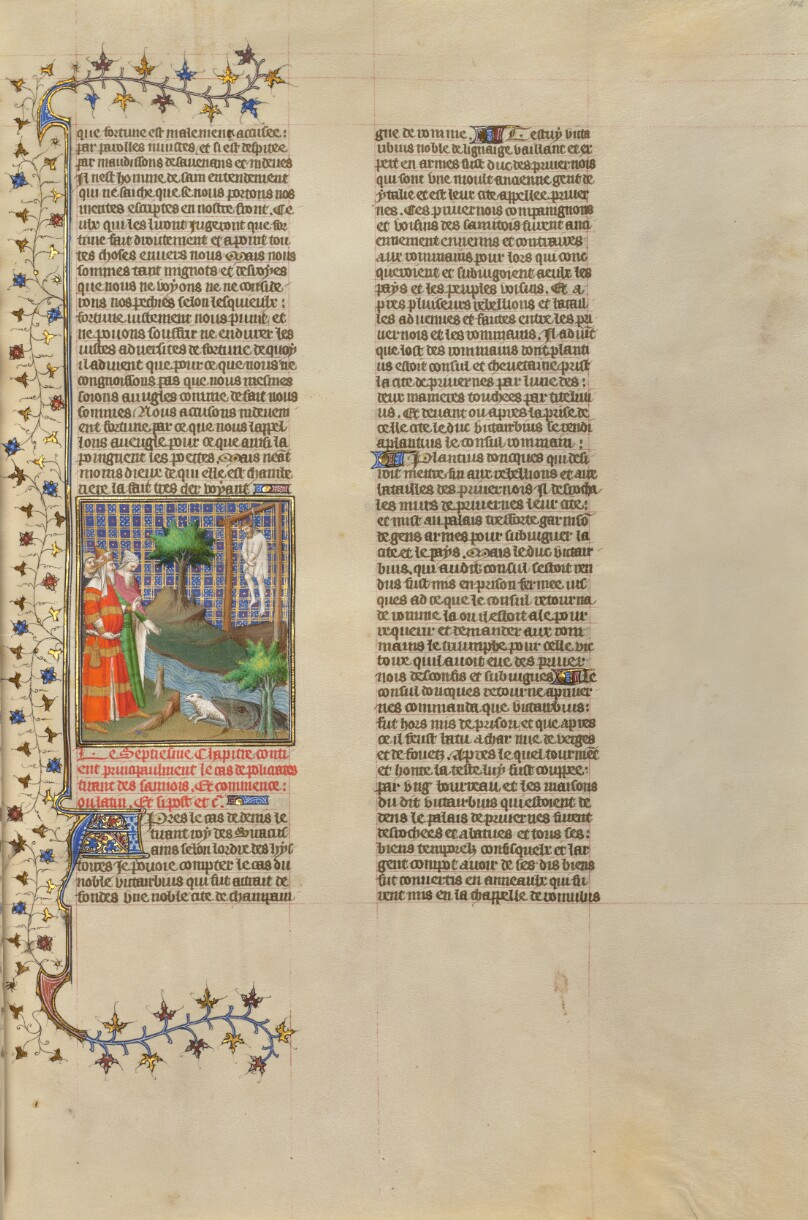 que fortune est malement accusee:
par parolles iniustes, et si est despitee
par maudissons desauenans et indeues
Il nest homme de sain entendement
qui ne saiche que se nous portons nos
mentes escriptes en nostre front. Ce
ulx qui les liront jugeront que for
tune fait droictement et a point tou
tes choses enuers nous Mais nous
sommes tant mignots et desuoyes
que nous ne voyons ne ne conside
rons nos pechies selon lesquieulx:
fortune iustement nous punit, et
ne pouons souffrir ne endurer les
iustes aduersites de fortune de quoy
il aduient que pour ce que nous ne
congnoissons pas que nous mesmes
soions auugles comme de fait nous
sommes/ Nous accusons indeuem
ent fortune, par ce que nous lappel
lons aueugle, pour ce que ainsi la
poingnent les poetes. Mais neat
moins dieux de qui elle est chambe
riere la fait tres cler voyant
Le Septiesme Chapitre conti
ent principaulment le cas de policrates
tirant des samiois. Et commence:
ou latin. Et si post et c.
Apres le cas de denis le
tirant roy des Siracus
ains selon lordre des hys
toires je pouoie compter le cas du
noble vitruibius qui fut attrait de
fondes vne noble cite de champai
gne de romme. Cestuy vitru
uibius noble de lignaige vaillant et ex
pert en armes fust duc des priuernois
qui sont vne moult ancienne gent de
ytalie et est leur cite appellee priuer
nes. Ces priuernois compaignons
et voisins des samitois furent anci
ennement ennemis et contraires
aux rommains pour lors qui conc
queroient et subiugoient a eulx les
pays et les peuples voisins. Et a
pres plusieurs rebellions et batail
les aduenues et faites entre les pri
uernois et les rommains. Il aduit
que lost des rommains dont planti
us estoit consul et cheuetaine prist
la cite de priuernes par lune des:
deux manieres touchees par titeliui
us. Et deuant ou apres la prise de
celle cite le duc vitruibius se rendi
a plantius le consul rommain:
Plantius doncques qui desi
roit mettre fin aux rebellions et aux
batailles des priuernois Il destrocha
les murs de priuernes leur cite:
et mist au palais tresforte garniso
de gens armes pour subiuguer la
cite et le pays. Mais le duc vitrui
bius, qui audit consul sestoit ren
dus fust mis en prison fermee ius
ques ad ce que le consul retourna
de romme la ou il estoit ale pour
requerir et demander aux rom
mains le triumphe pour celle vic
toire quil auoit eue des priuer
nois desconfis et subiugues Le
consul doncques retourne a priuer
nes commanda que vitruibius:
fut hors mis de prison, et que apres
ce il feust batu a char nue de verges
et de fouetz. Apres le quel tourment
et honte la teste luy fust couppee:
par vng bourreau, et les maisons
du dit vitruibius qui estoient de
dens le palais de priuernes furent
destrochees et abatues et tous ses:
biens temporelz confisquelx et lar
gent compot auoir de ses dis biens
fut conuertis en anneaulx qui fu
rent mis en la chappelle de romulus